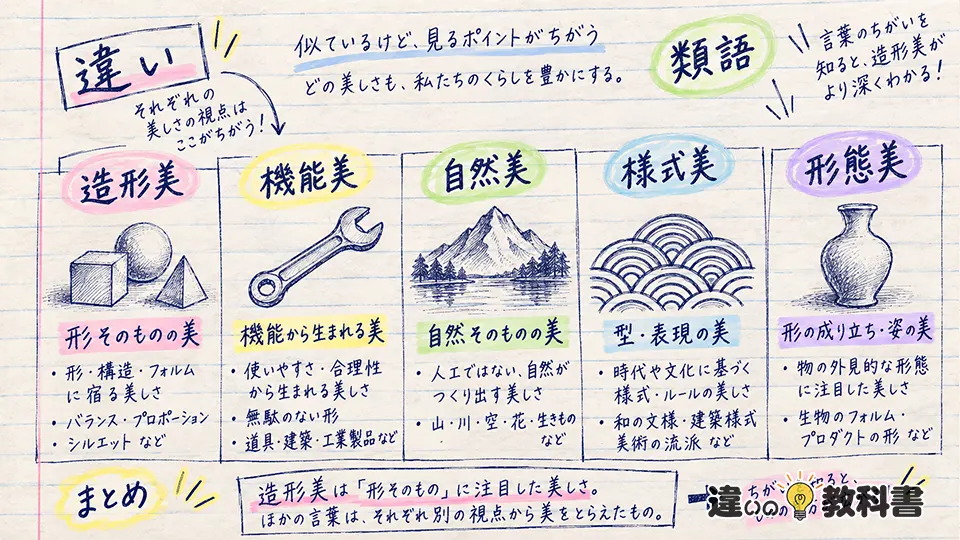 違い
それぞれの
美しさの視点は
ここがちがう!
似ているけど、見るポイントがちがう
どの美しさも、私たちのくらしを豊かにする。
類語
言葉のちがいを
知ると、造形美が
より深くわかる!
造形美
形そのものの美
・形・構造・フォルム
に宿る美しさ
・バランス・プロポーション
・シルエット など
機能美
機能から生まれる美
・使いやすさ・合理性
から生まれる美しさ
・無駄のない形
・道具・建築・工業製品など
自然美
自然そのものの美
・人工ではない、自然が
つくり出す美しさ
・山・川・空・花・生きもの
など
様式美
型・表現の美
・時代や文化に基づく
様式・ルールの美しさ
・和の文様・建築様式
美術の流派 など
形態美
形の成り立ち・姿の美
・物の外見的な形態
に注目した美しさ
・生物のフォルム・
プロダクトの形 など
まとめ
造形美は「形そのもの」に注目した美しさ。
ほかの言葉は、それぞれ別の視点から美をとらえたもの。
違いの教科書